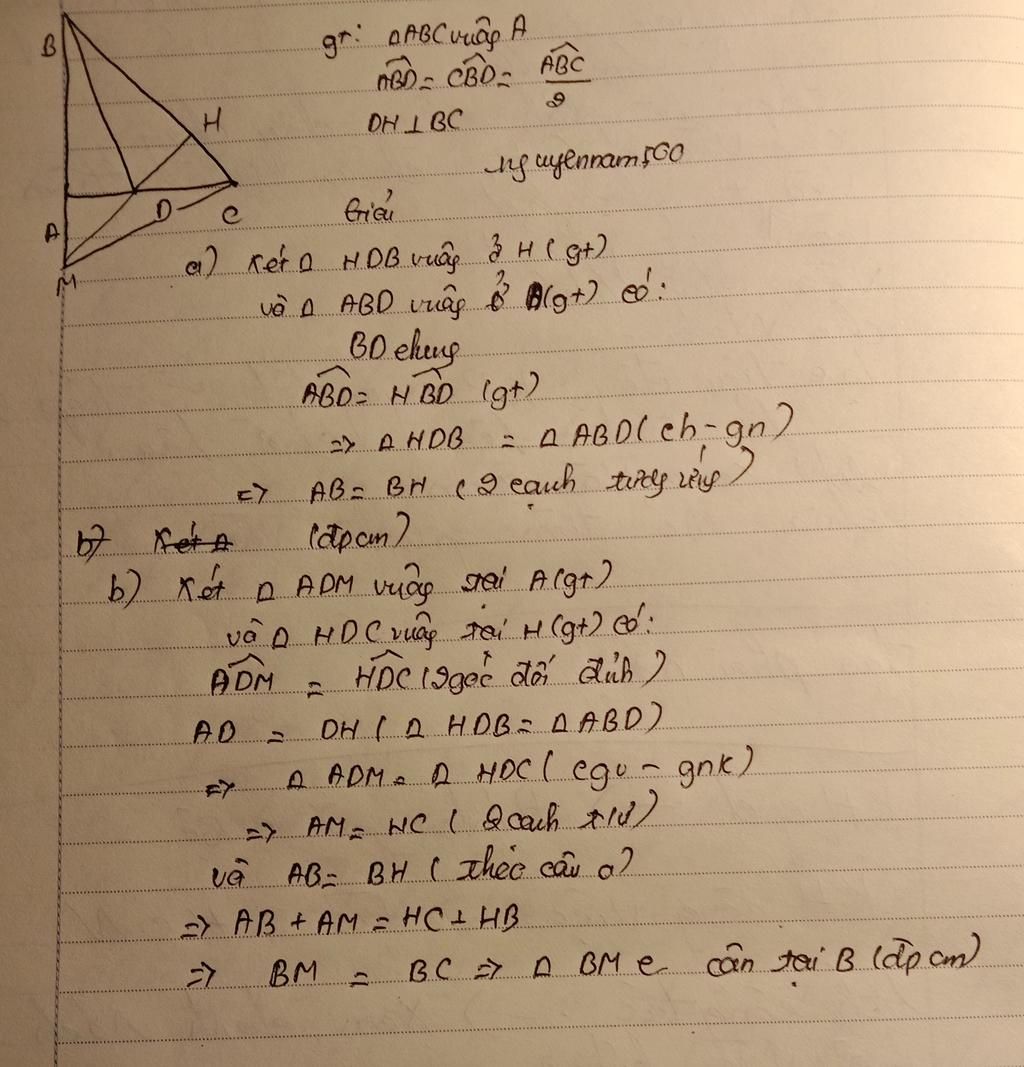 B
H
D
C
A
M
gt: △ABC vuông A
ABD = CBD = ABC/2
DH ⊥ BC
nguyennam500
Giải
a) Xét △ HDB vuông ở H (gt)
và △ ABD vuông ở A (gt) có:
BD chung
ABD = HBD (gt)
=> △ HDB = △ ABD (ch-gn)
=> AB = BH (2 cạnh tương ứng)
b) Xét △ (đpcm)
b) Xét △ ADM vuông tại A (gt)
và △ HDC vuông tại H (gt) có:
ADM = HDC (2 góc đối đỉnh)
AD = DH (△ HDB = △ ABD)
=> △ ADM = △ HDC (cgv - gnk)
=> AM = HC (2 cạnh t/ứ)
và AB = BH (theo câu a)
=> AB + AM = HC + HB
=> BM = BC => △ BMC cân tại B (đpcm)